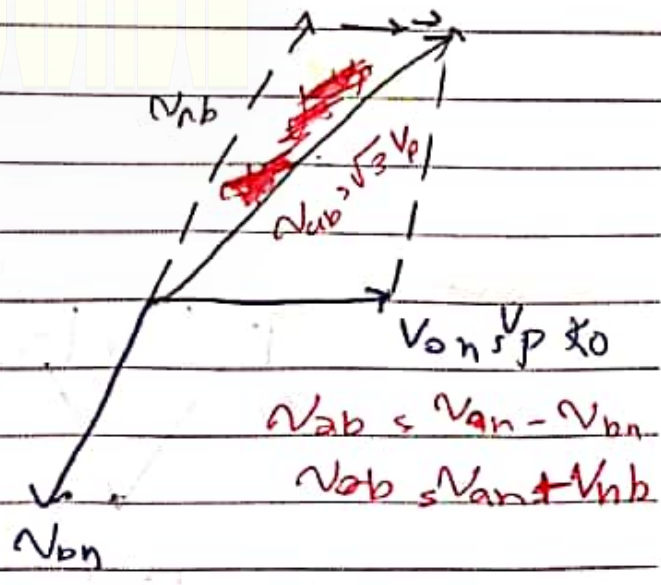 Vnb
Vab = √3 Vp
Van = Vp ∠0
Vab = Van - Vbn
Vab = Van + Vnb
Vbn